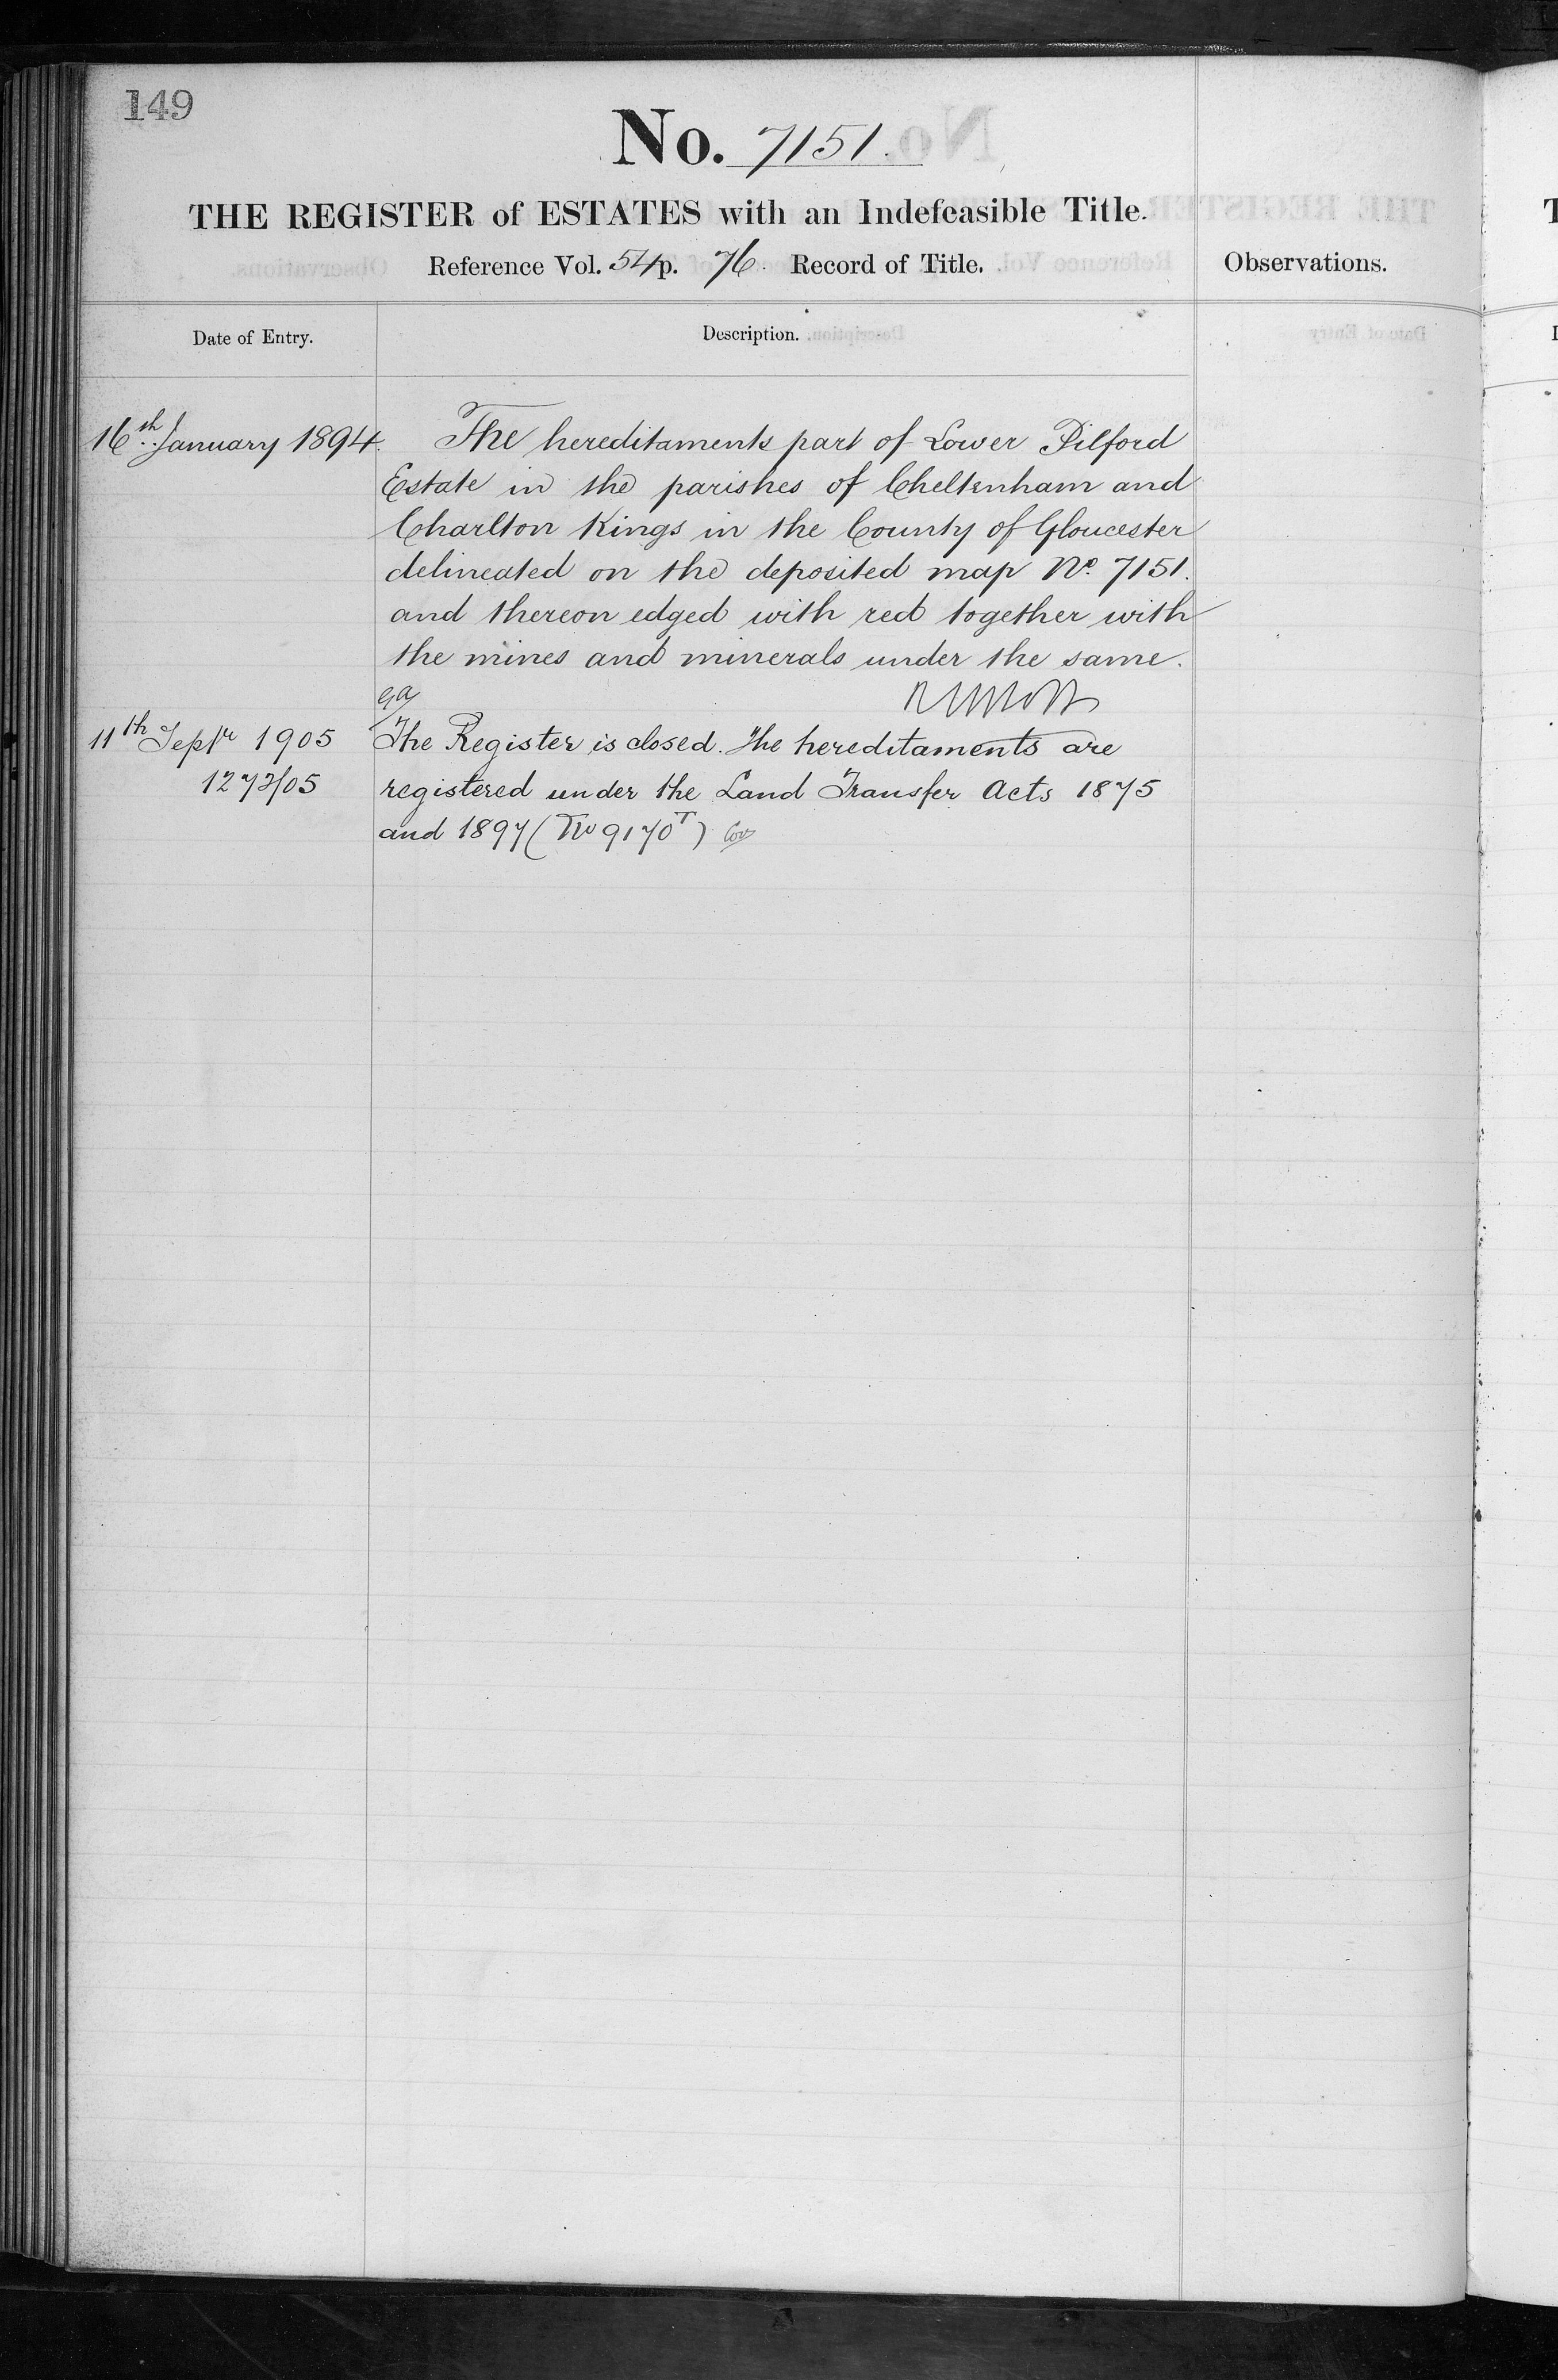 149
No. 7151.
THE REGISTER of ESTATES with an Indefeasible Title.
Reference Vol. 54 p. 76. Record of Title.
Observations.
Date of Entry.
Description.
16th January 1894.
The hereditaments part of Lower Pilford
Estate in the parishes of Cheltenham and
Charlton Kings in the County of Gloucester
delineated on the deposited map No. 7151.
and thereon edged with red together with
the mines and minerals under the same.
11th Septr 1905
1273/05
The Register is closed. The hereditaments are
registered under the Land Transfer Acts 1875
and 1897 (No 9170T)